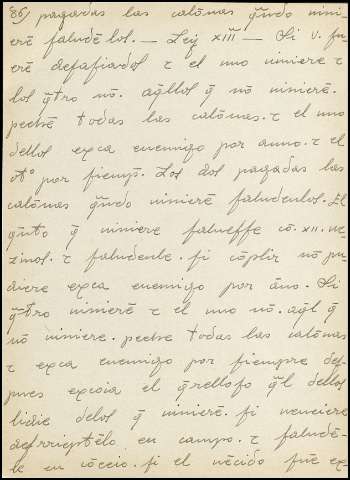 86) pagadas las calōnas q̃ndo vini-
erē saludē los. — Ley xiiīī — Si v. fu-
erē desafiados τ el uno viniere τ
los q̃tro nō. aq̃llos q̃ nō vinierē.
pechē todas las calōnas. τ el uno
dellos exca enemigo por anno. τ el
ot° por siemp̄. Los dos pagadas las
calōnas q̃ndo vinierē saludenlos. El
q̃nto q̃ viniere salvesse cō. xii. ve-
zinos. τ saludenle. si cōplir nō pu-
diere exca enemigo por āno. Si
q̃tro vinierē τ el uno nō. aq̃l q̃
nō viniere. peche todas las calōnas
τ exca enemigo por siempre des-
pues escoia el q̃relloso q̃l dellos
lidie delos q̃ vinierē. si venciere
desrrieptēlo en campo. τ saludē-
le en cōceio. si el vēcido fuē ex-